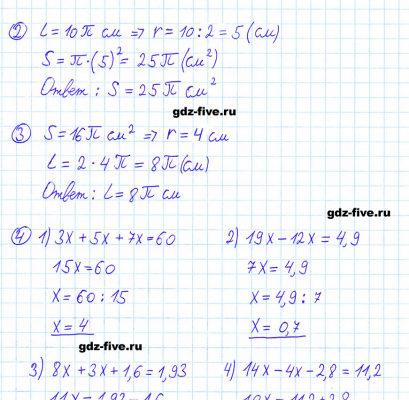 ② L = 10π см => r = 10 : 2 = 5 (см)
S = π·(5)² = 25π (см²)
Ответ : S = 25π см²
gdz-five.ru
③ S = 16π см² => r = 4 см
L = 2 · 4π = 8π (см)
Ответ : L = 8π см
gdz-five.ru
④ 1) 3x + 5x + 7x = 60
15x = 60
x = 60 : 15
x = 4
2) 19x – 12x = 4,9
7x = 4,9
x = 4,9 : 7
x = 0,7
gdz-five.ru
3) 8x + 3x + 1,6 = 1,93
11x = 1,93 – 1,6
4) 14x – 4x – 2,8 = 11,2
10x = 11,2 + 2,8